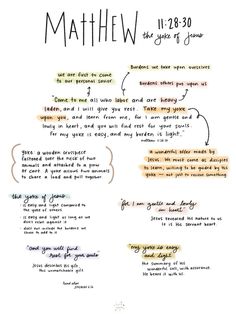 MATTHEW
11:28-30
the yoke of Jesus
burdens we take upon ourselves
we are first to come
to our personal savior
burdens others put upon us
"Come to me all who labor and are heavy
laden, and I will give you rest. Take my yoke
upon you, and learn from me, for I am gentle and
lowly in heart, and you will find rest for your souls.
For my yoke is easy, and my burden is light."
matthew 11:28-30
yoke: a wooden crosspiece
fastened over the neck of two
animals and attached to a plow
or cart. A yoke allows two animals
to share a load and pull together
a wonderful offer made by
Jesus. We must come as disciples
to learn, willing to be guided by his
yoke — not just to receive something
the yoke of Jesus
is easy and light compared to
the yoke of others
is easy and light as long as we
does not include the burdens we
choose to add to it
"for I am gentle and lowly
in heart"
Jesus reveals His nature to us
it is His servant heart.
"and you will find
rest for your souls"
Jesus describes His gift,
His unmatchable gift
read also:
"my yoke is easy
and light"
the summary of His
wonderful call, with assurance
He bears it with us.